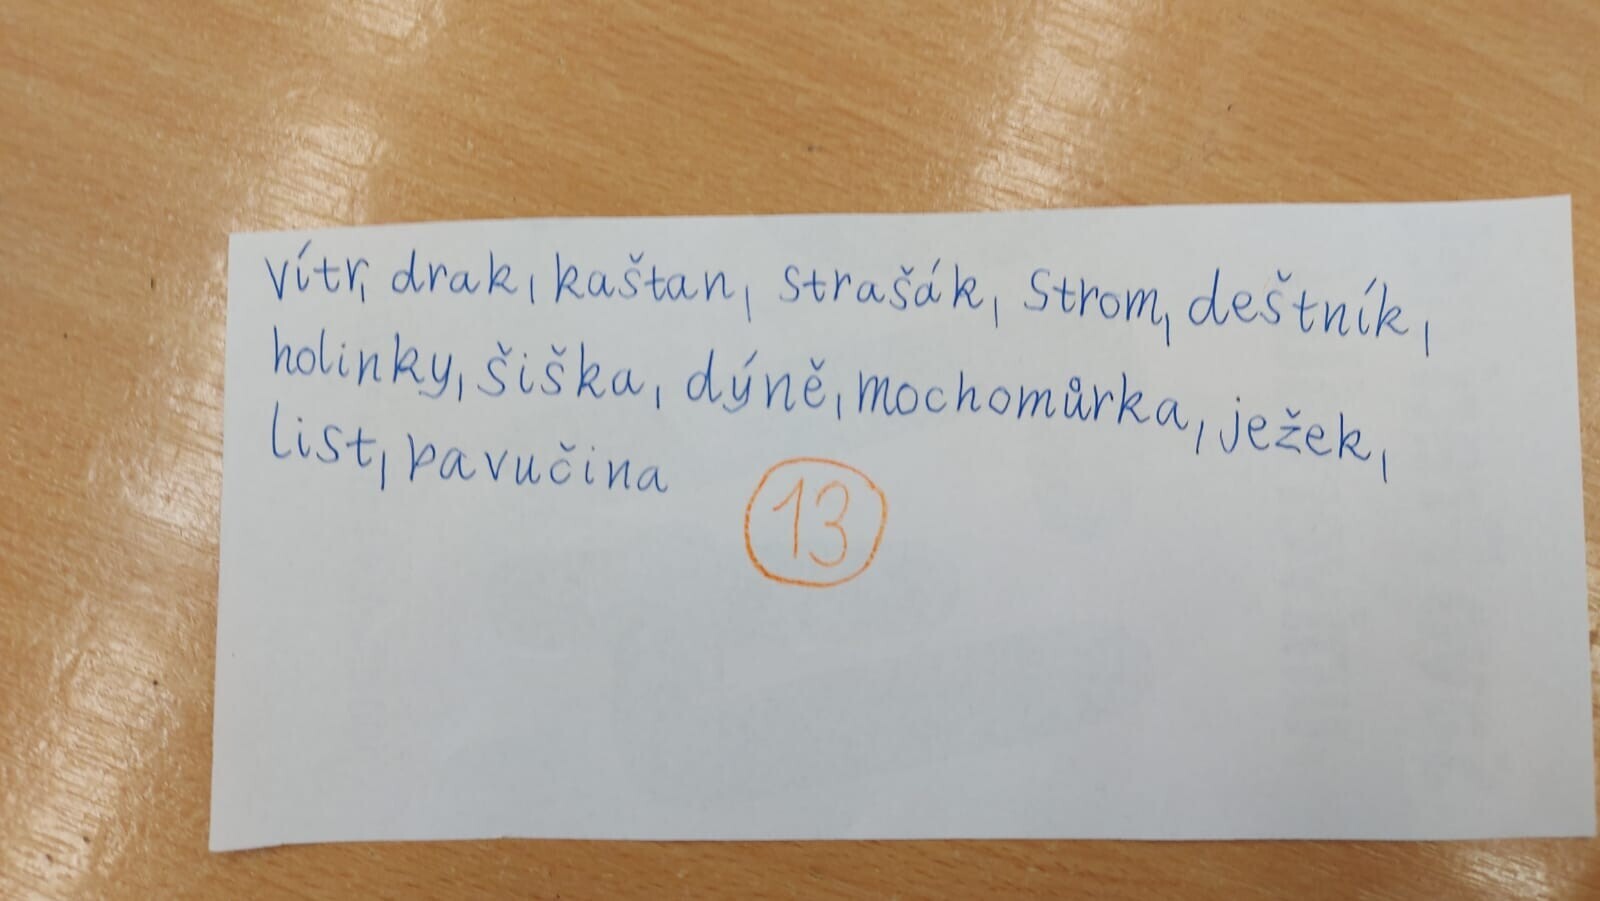 vítr, drak, kaštan, strašák, strom, deštník,
holinky, šiška, dýně, mochomůrka, ježek,
list, pavučina
13